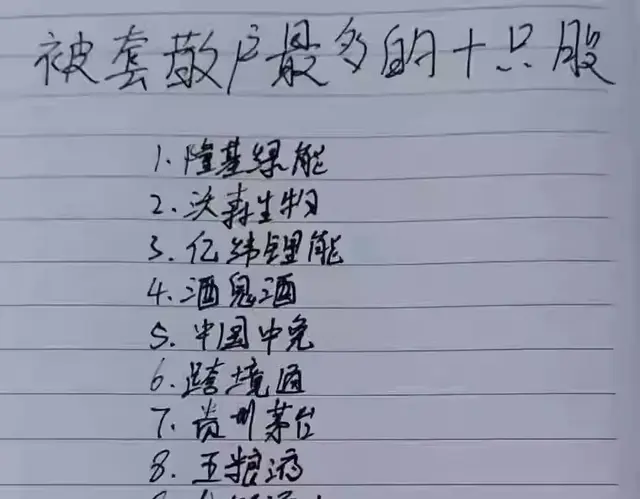 被套散户最多的十只股
1. 隆基绿能
2. 沃森生物
3. 亿纬锂能
4. 酒鬼酒
5. 中国中免
6. 跨境通
7. 贵州茅台
8. 五粮液